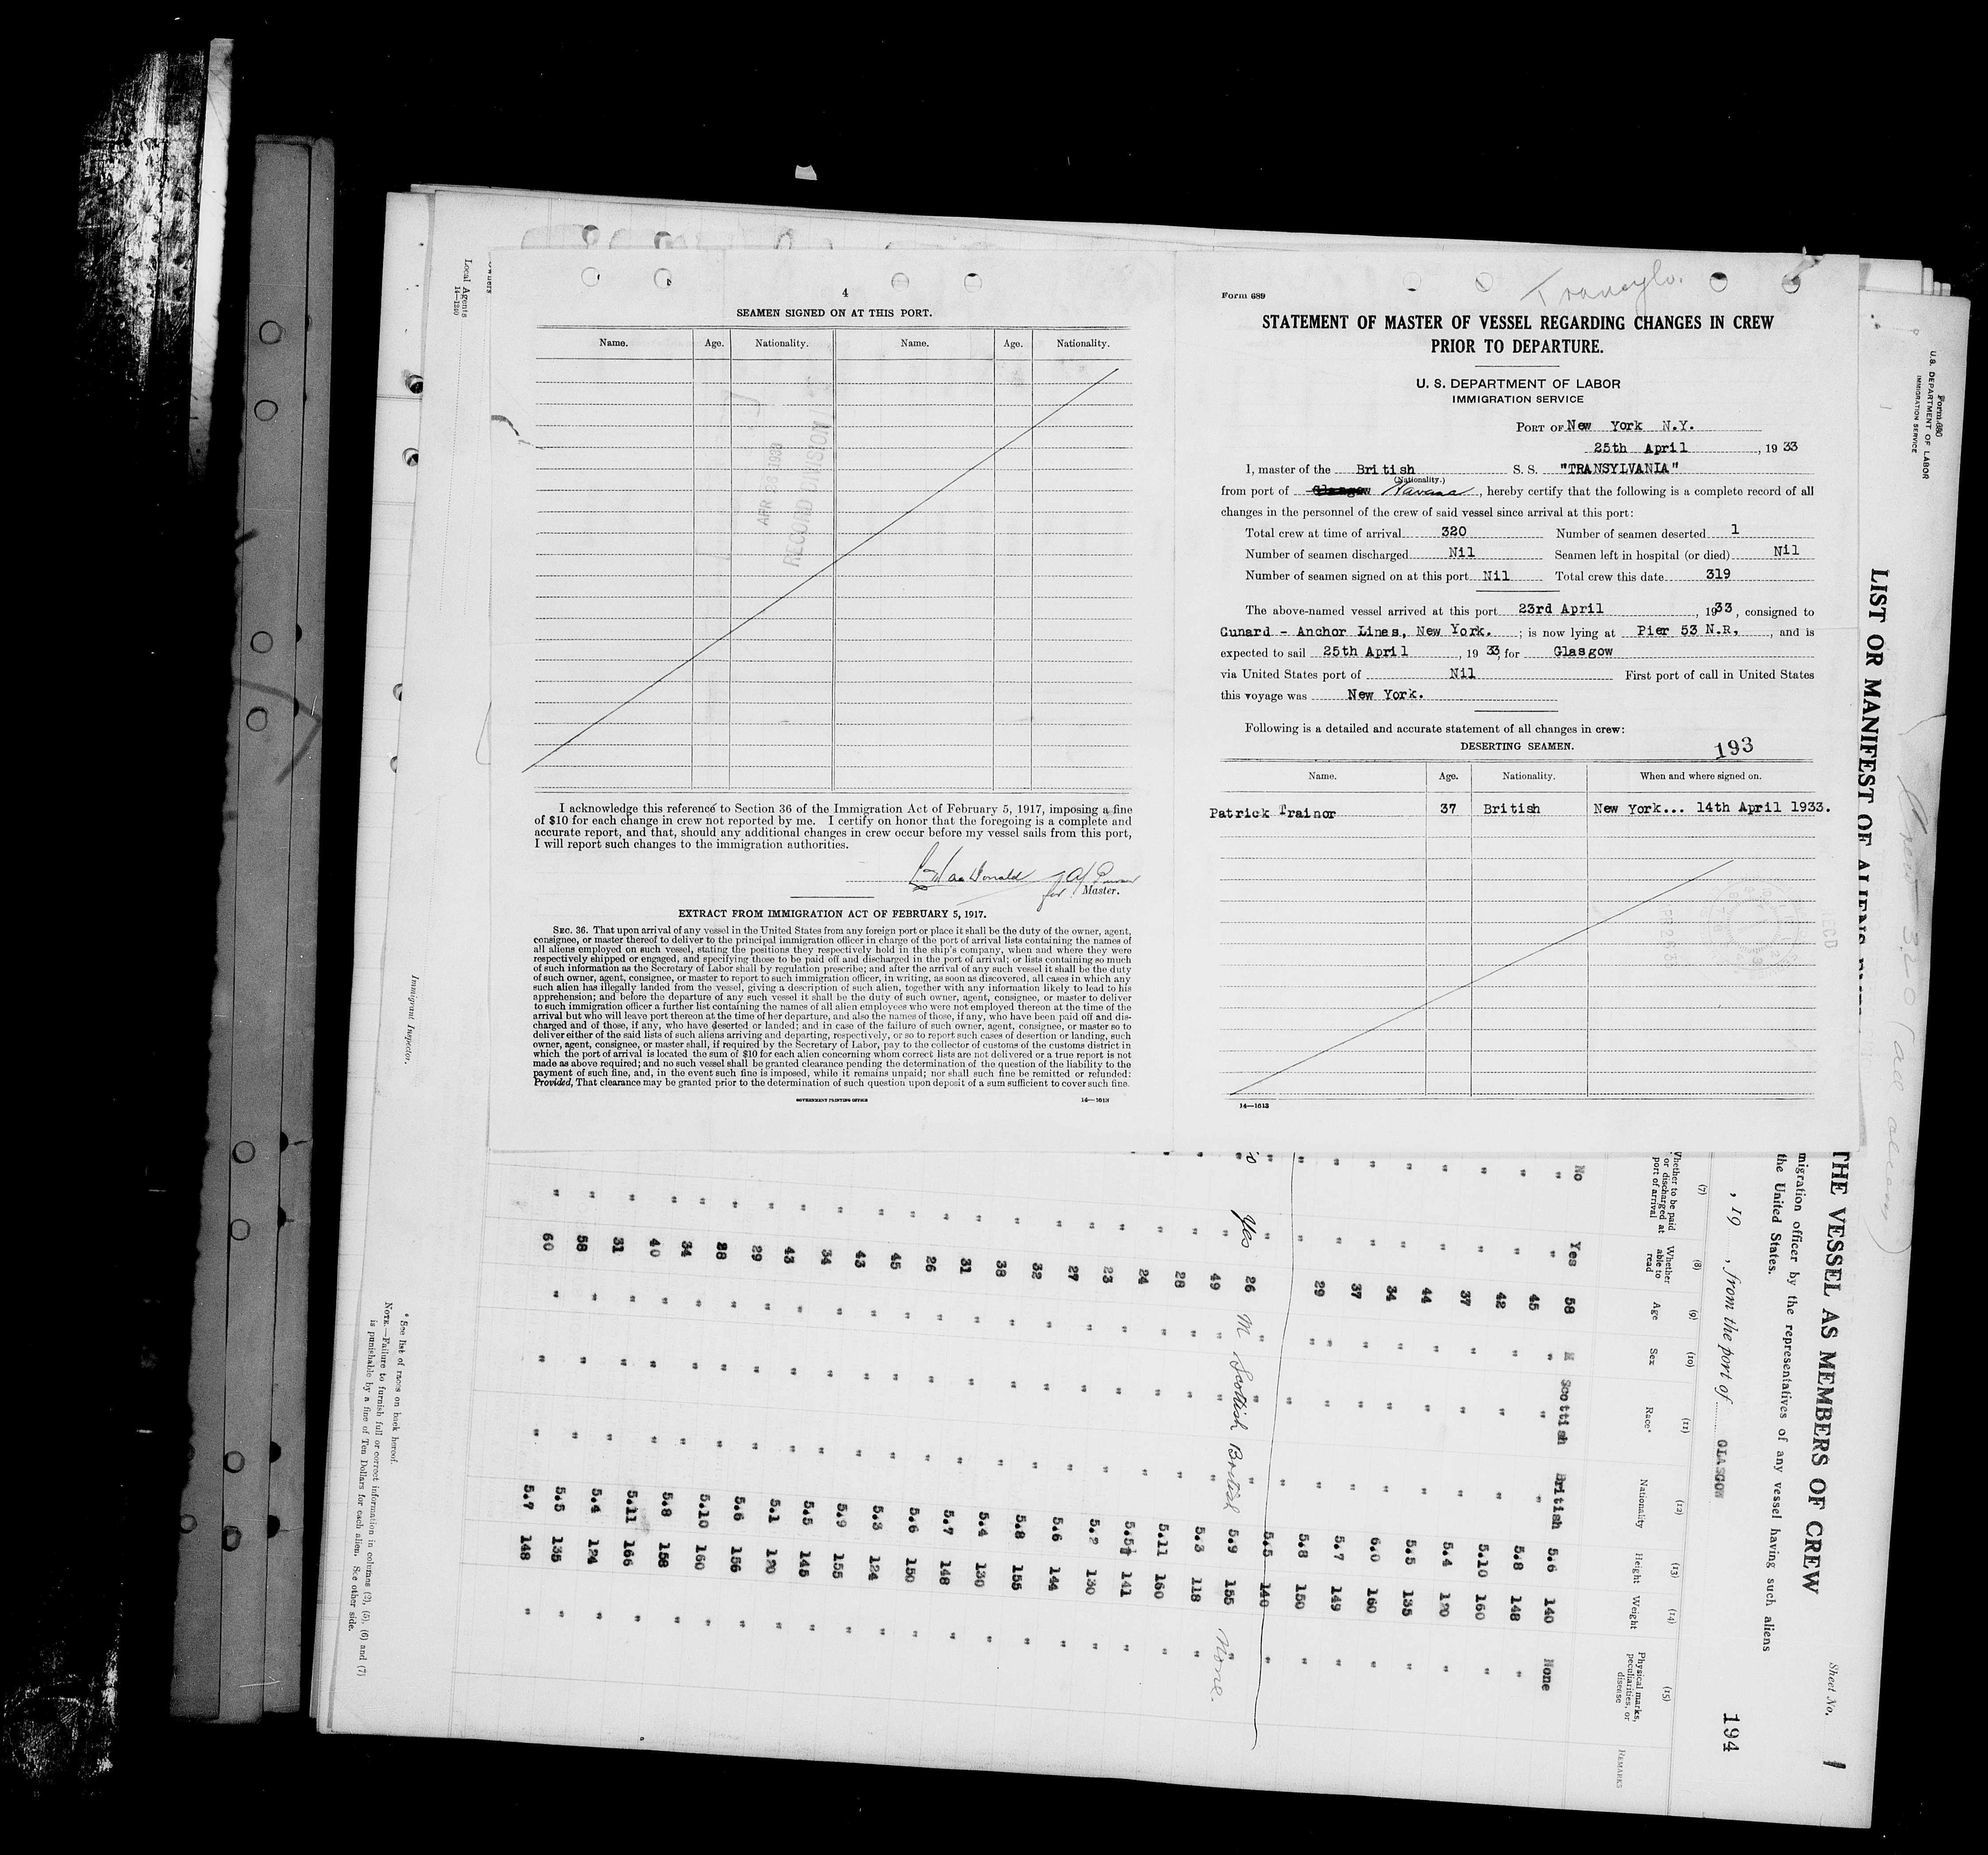 4
SEAMEN SIGNED ON AT THIS PORT.
Name. Age. Nationality. Name. Age. Nationality.
APR 26 1933
RECORD DIVISION
I acknowledge this reference to Section 36 of the Immigration Act of February 5, 1917, imposing a fine
of $10 for each change in crew not reported by me. I certify on honor that the foregoing is a complete and
accurate report, and that, should any additional changes in crew occur before my vessel sails from this port,
I will report such changes to the immigration authorities.
MacDonald
for Master.
EXTRACT FROM IMMIGRATION ACT OF FEBRUARY 5, 1917.
SEC. 36. That upon arrival of any vessel in the United States from any foreign port or place it shall be the duty of the owner, agent,
consignee, or master thereof to deliver to the principal immigration officer in charge of the port of arrival lists containing the names of
all aliens employed on such vessel, stating the positions they respectively hold in the ship's company, when and where they were
respectively shipped or engaged, and specifying those to be paid off and discharged in the port of arrival; or lists containing so much
of such information as the Secretary of Labor shall by regulation prescribe; and after the arrival of any such vessel it shall be the duty
of such owner, agent, consignee, or master to report to such immigration officer, in writing, as soon as discovered, all cases in which any
such alien has illegally landed from the vessel, giving a description of such alien, together with any information likely to lead to his
apprehension; and before the departure of any such vessel it shall be the duty of such owner, agent, consignee, or master to deliver
to such immigration officer a further list containing the names of all alien employees who were not employed thereon at the time of the
arrival but who will leave port thereon at the time of her departure, and also the names of those, if any, who have been paid off and dis-
charged and of those, if any, who have deserted or landed; and in case of the failure of such owner, agent, consignee, or master so to
deliver either of the said lists of such aliens arriving and departing, respectively, or so to report such cases of desertion or landing, such
owner, agent, consignee, or master shall, if required by the Secretary of Labor, pay to the collector of customs of the customs district in
which the port of arrival is located the sum of $10 for each alien concerning whom correct lists are not delivered or a true report is not
made as above required; and no such vessel shall be granted clearance pending the determination of the question of the liability to the
payment of such fine, and, in the event such fine is imposed, while it remains unpaid; nor shall such fine be remitted or refunded:
Provided, That clearance may be granted prior to the determination of such question upon deposit of a sum sufficient to cover such fine.
GOVERNMENT PRINTING OFFICE 14—1613
Form 689
STATEMENT OF MASTER OF VESSEL REGARDING CHANGES IN CREW
PRIOR TO DEPARTURE.
U. S. DEPARTMENT OF LABOR
IMMIGRATION SERVICE
PORT OF New York N.Y.
25th April, 19 33
I, master of the British S. S. "TRANSYLVANIA"
(Nationality.)
from port of Glasgow Havana, hereby certify that the following is a complete record of all
changes in the personnel of the crew of said vessel since arrival at this port:
Total crew at time of arrival 320 Number of seamen deserted 1
Number of seamen discharged Nil Seamen left in hospital (or died) Nil
Number of seamen signed on at this port Nil Total crew this date 319
The above-named vessel arrived at this port 23rd April, 1933, consigned to
Cunard - Anchor Lines, New York. ; is now lying at Pier 53 N.R, , and is
expected to sail 25th April, 19 33, for Glasgow
via United States port of Nil First port of call in United States
this voyage was New York.
Following is a detailed and accurate statement of all changes in crew:
DESERTING SEAMEN. 193
Name. Age. Nationality. When and where signed on.
Patrick Trainor 37 British New York... 14th April 1933.
14—1613
Local Agents
14—1240
Immigrant Inspector.
Form 680
U.S. DEPARTMENT OF LABOR
IMMIGRATION SERVICE
LIST OR MANIFEST OF ALIENS
THE VESSEL AS MEMBERS OF CREW
Sheet No. 1
migration officer by the representatives of any vessel having such aliens
the United States.
, 19 , from the port of GLASGOW
194
(7) (8) (9) (10) (11) (12) (13) (14) (15)
Whether to be paid or discharged at port of arrival Whether able to read Age Sex Race* Nationality Height Weight Physical marks, peculiarities, or disease REMARKS
No Yes 58 M Scottish British 5.6 140 None
" " 45 " " " 5.8 148 "
" " 42 " " " 5.10 160 "
" " 37 " " " 5.4 120 "
" " 44 " " " 5.5 135 "
" " 34 " " " 6.0 160 "
" " 37 " " " 5.7 149 "
" " 29 " " " 5.8 150 "
" " " " " 5.5 140 "
Yes 26 M Scottish British 5.9 155 None.
" " 49 " " " 5.3 118 "
" " 28 " " " 5.11 160 "
" " 24 " " " 5.5½ 141 "
" " 23 " " " 5.2 130 "
" " 27 " " " 5.6 144 "
" " 32 " " " 5.8 155 "
" " 38 " " " 5.4 130 "
" " 31 " " " 5.7 148 "
" " 26 " " " 5.6 150 "
" " 45 " " " 5.3 124 "
" " 43 " " " 5.9 155 "
" " 34 " " " 5.5 145 "
" " 43 " " " 5.1 120 "
" " 29 " " " 5.6 156 "
" " 28 " " " 5.10 160 "
" " 34 " " " 5.8 158 "
" " 40 " " " 5.11 166 "
" " 31 " " " 5.4 124 "
" " 58 " " " 5.5 135 "
" " 60 " " " 5.7 148 "
* See list of races on back hereof.
NOTE.—Failure to furnish full or correct information in columns (2), (5), (6) and (7)
is punishable by a fine of Ten Dollars for each alien. See other side.